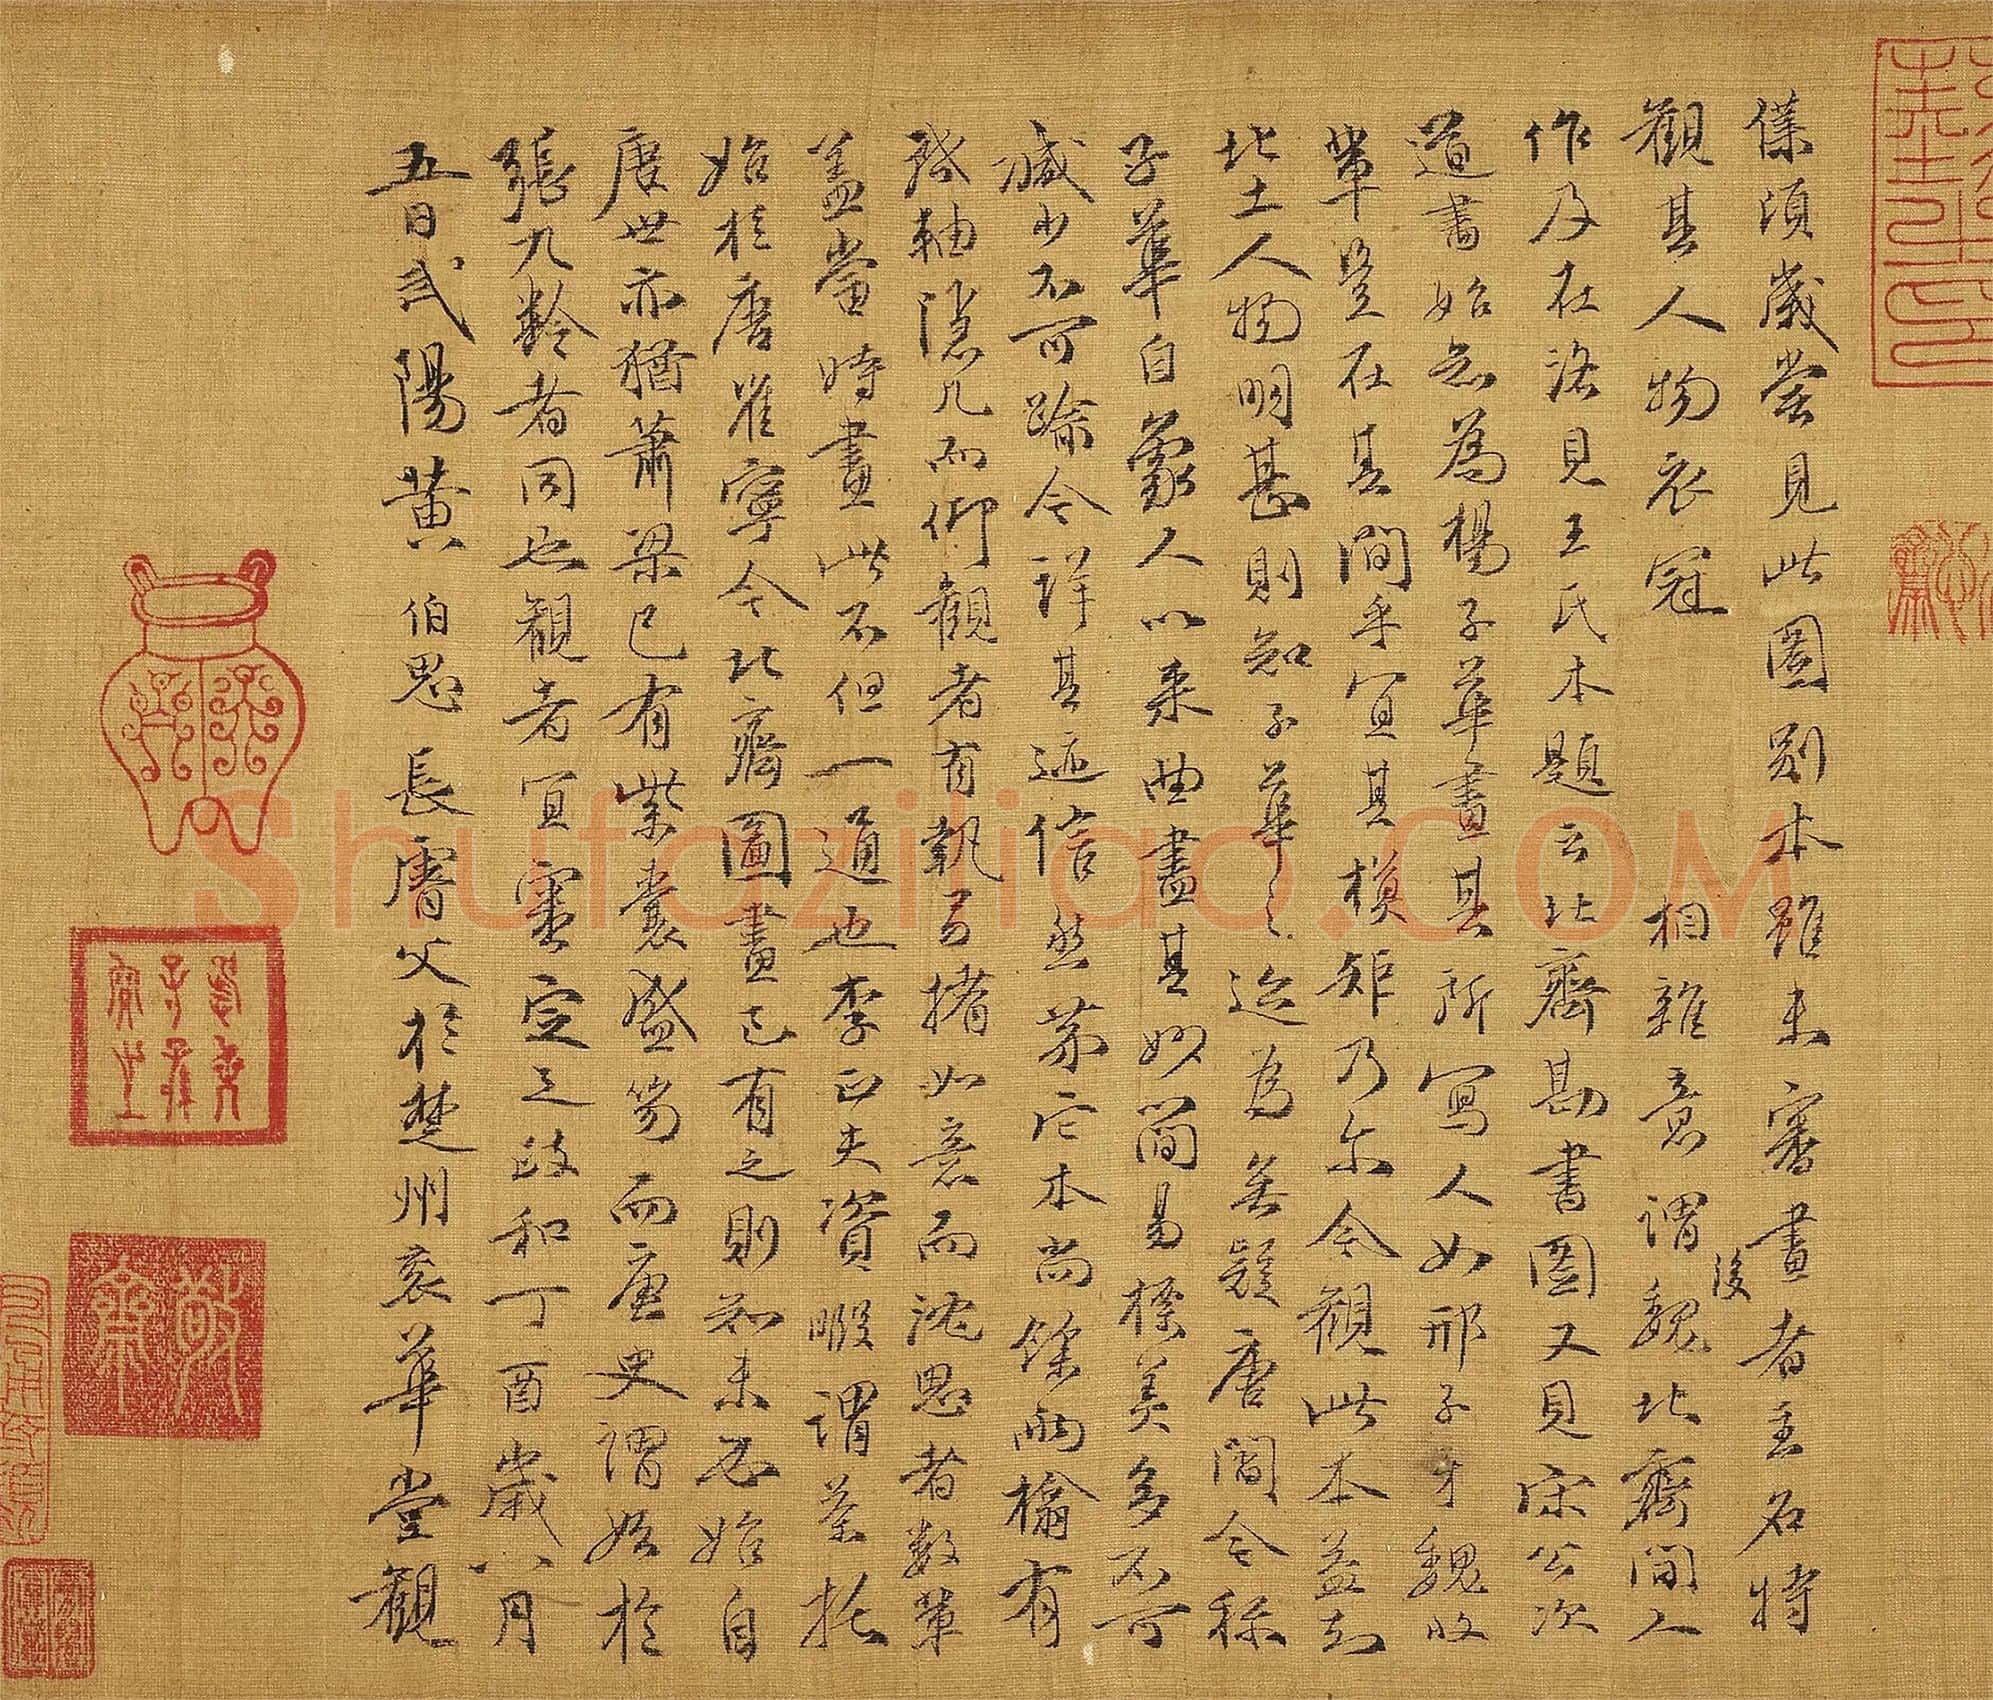 僕頃歲嘗見此圖別本雖未審畫者主名特
觀其人物衣冠 相雜意謂後魏北齊間人
作及在洛見王氏本題云北齊勘書圖又見宋公次
道書始知為楊子華畫其所寫人如邢子才魏收
輩豈在其間乎宜其模矩乃尔今觀此本益知
北土人物明甚則知子華之迹為無疑唐閻令称
子華自象人以来曲盡其妙簡易標美多不可
減少不可踰今詳其迹信然第它本尚餘兩榼有
啓軸隱几而仰觀者有執搘如意而沈思者數輩
蓋當時畫此不但一通也李正夫資暇謂茶托
始於唐崔寧今北齊圖畫已有之則知未必始自
唐世亦猶蕭梁已有紫囊盛笏而唐史謂始於
張九齡者同也觀者宜審定之政和丁酉歲八月
五日武陽黃伯思長睿父於楚州華堂觀
敬齋
Shufaziliao.COM